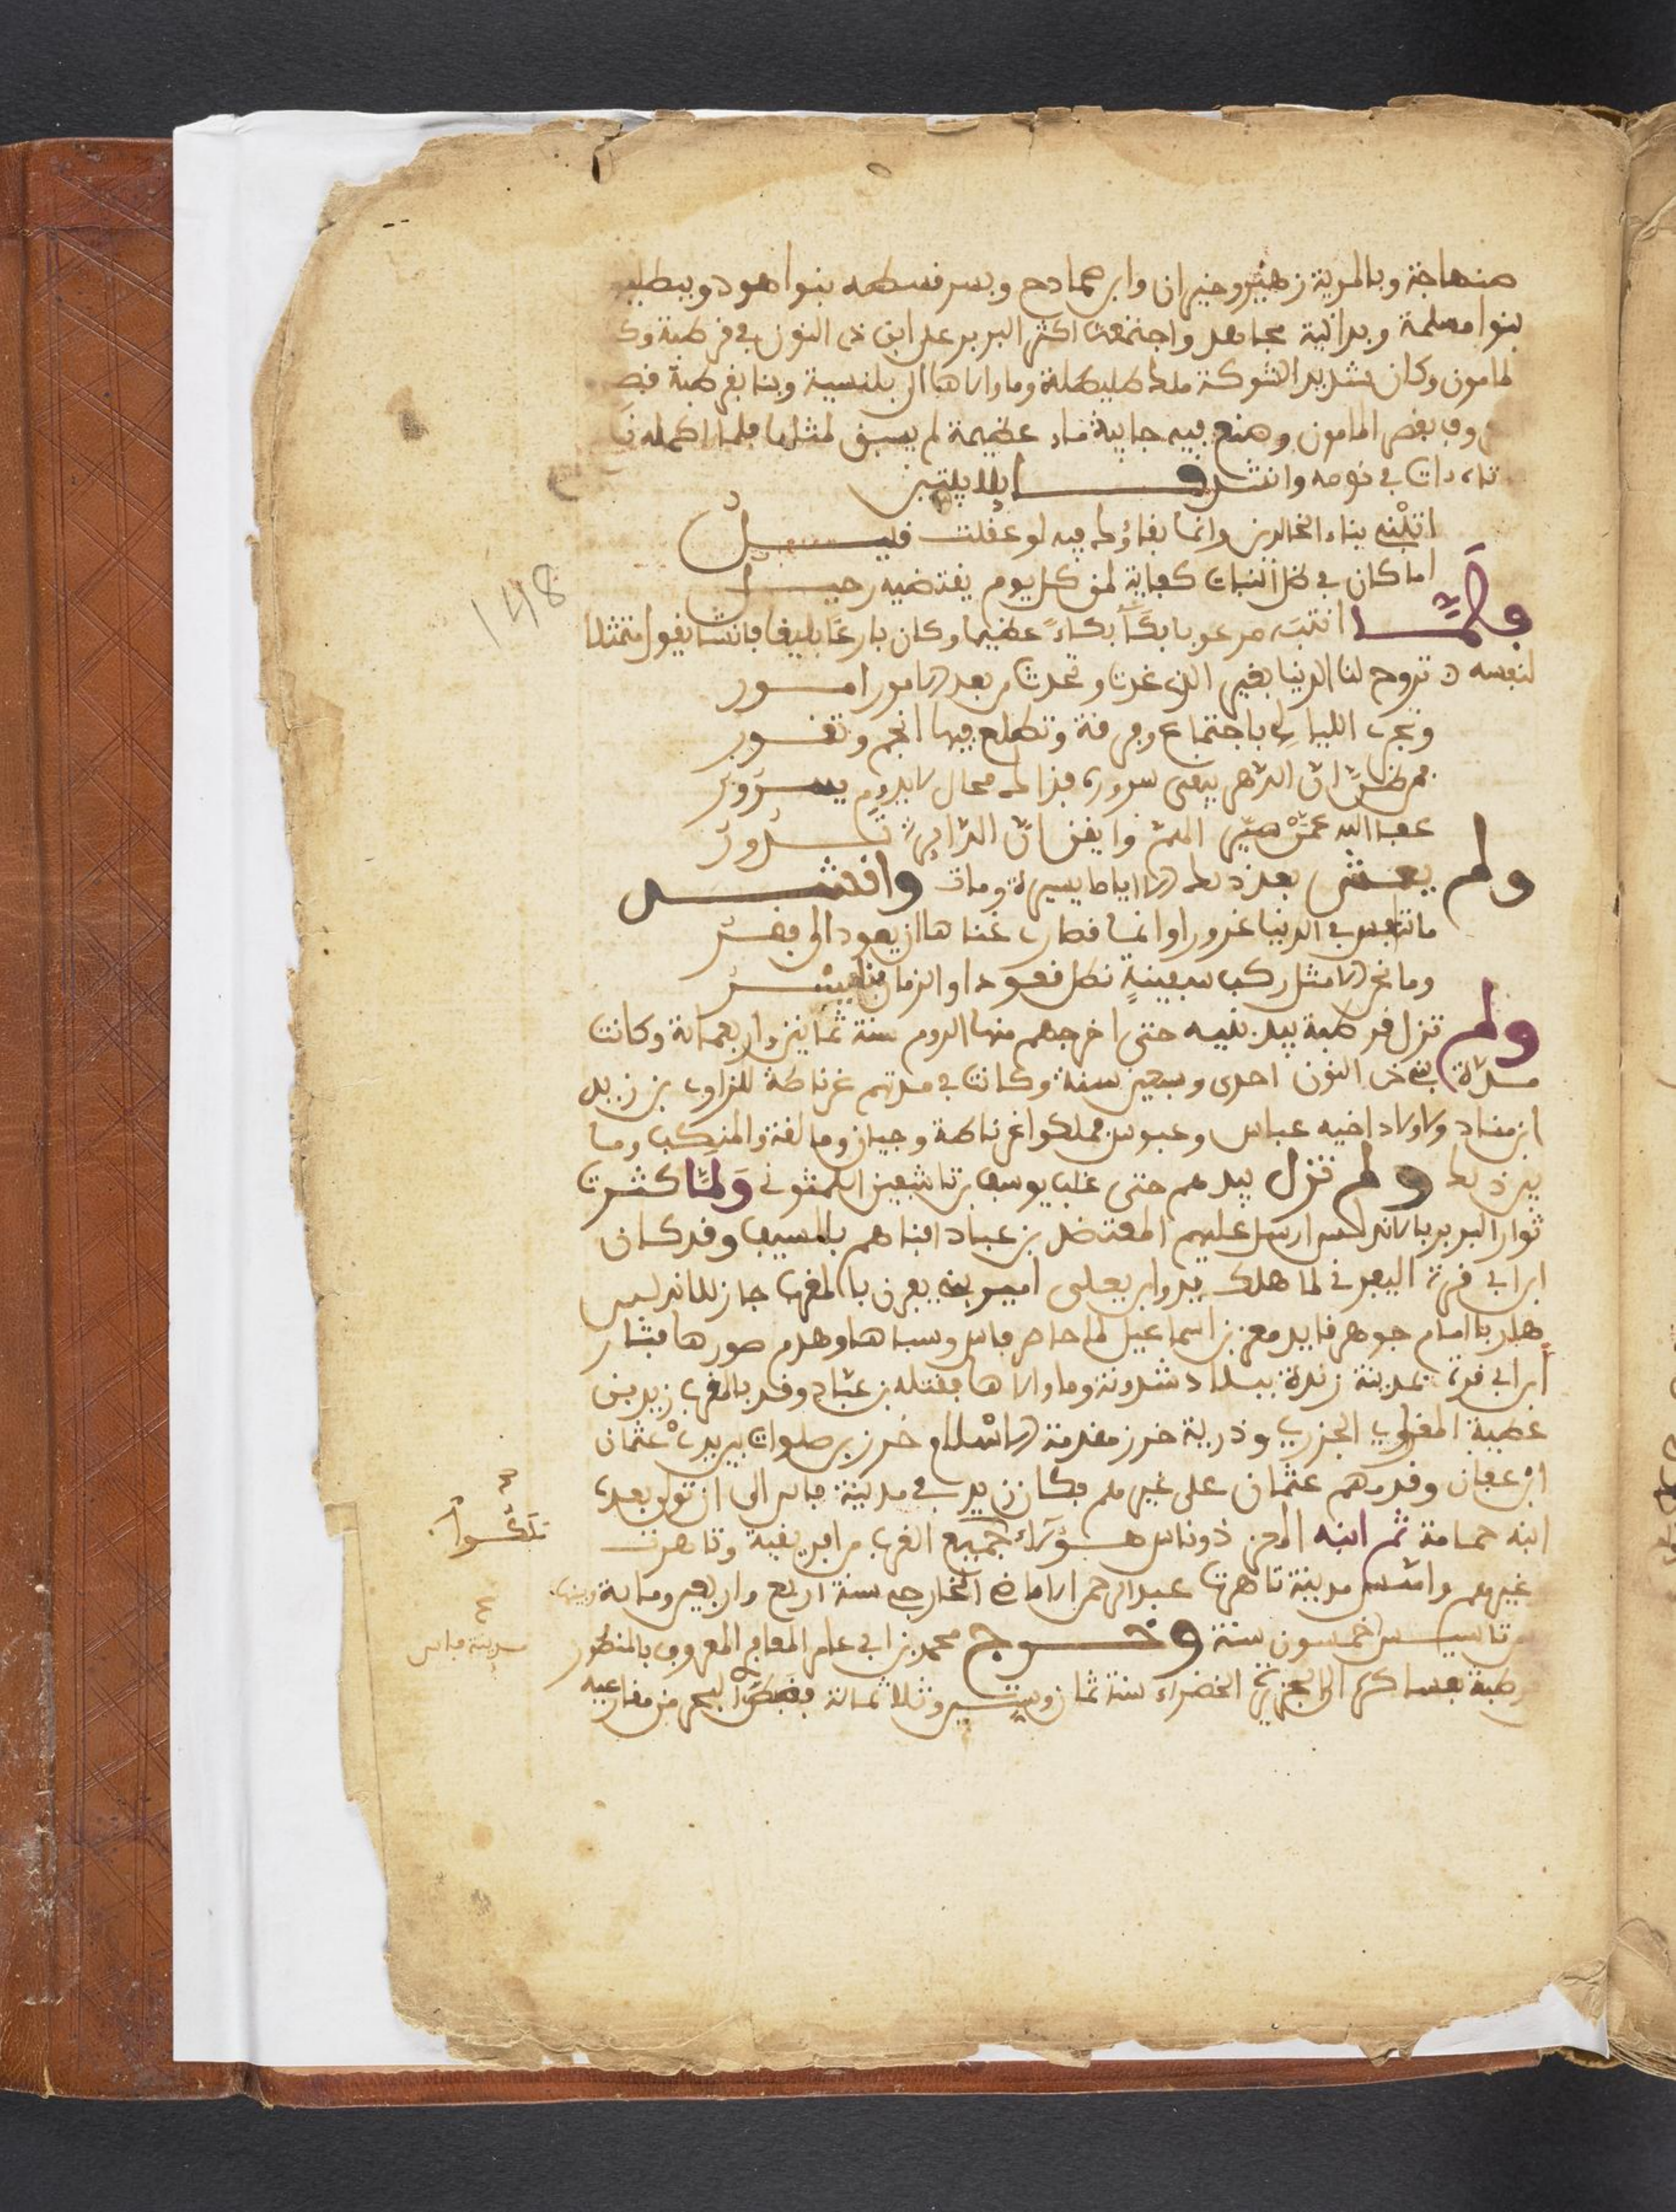 صنهاجة وبالمرية زهير وخيران وابن صمادح وبسرفسطه بنوا هود وببطليو
بنوا مسلمة وبدانية مجاهد واجتمعت اكثر البربر على ابن ذى النون في قرطبة وك
لمامون وكان شديد الشوكة ملك طليطلة وما والاها الى بلنسية وبنا بقرطبة قصـ
بقصر المامون وصنع فيه جابية ماء عظيمة لم يسبق لمثلها فلما اكمله
ذات في نومه وانشد
اتبنى بناء الخالدين وانما بقاؤك فيه لو عقلت قليل
اما كان في ظل كفاية لمن كل يوم يقتضيه رحيل
فلمّا انتبه مرعوبا بكآ بكاء عظيما وكان بارعا بليغا فانشا يقول متمثلا
لنفسه تروح لنا الدنيا بغير الذي غدت وتحدث من بعد الامور امور
وتجرى الليالي باجتماع وفرقة وتطلع فيها انجم وتغور
فمن ظن ان الدهر يبقى سروره فذاك محال لا يدوم سرور
عفا الله عمن صير الهم واحدا وايقن ان الدائرات تدور
ولم يعش بعد ذلك الا اياما يسيرة ومات وانشد
ما في الدنيا غرورا وانما قصارى غناها ان يعود الى فقر
وما نحن الا مثل ركب سفينة نظل قعودا والزمان بنا يسر
ولم تزل قرطبة بيد بنيه حتى اخرجهم منها الروم سنة ثمانين واربعمائة وكانت
مدّة بنى ذى النون احدى وسبعين سنة وكانت في مدتهم غرناطة للزاوى بن زيد
ابن مناد ولاولاد اخيه عباس وعبوس فملكوا غرناطة وجيان ومالقة والمنكب وما
بين ذلك ولم تزل بيدهم حتى غلب يوسف بن تاشفين اللمتونى ولمّا كثرت
ثوار البربر بالاندلس ارسل عليهم المعتضد بن عباد افناهم بالسيف وقد كان
ابن ابي قرة اليفرنى لما هلك يدو ابن يعلى امير بنى يفرن بالمغرب جاز للاندلس
هاربا امام جوهر قايد معز بن اسماعيل لما حاصر فاس وسباها وهدم صورها فثار
ابن ابي قرة بمدينة رندة ببلاد شدونة وما والاها فقتله بن عبّاد وقد بالمغرب زيد بن
عطية المغراوي الجزري وذرية خزر مقدمة الاسلام خزر بن صلوات بيد عثمان
ابن عفان وقدمهم عثمان على غيرهم فكان زيد في مدينة فاس الى ان تولى بعده
ابنه حمامة ثم ابنه المعز ذوناس هؤلاء جميع الغرب من افريقية وتاهرت
غيرهم واسس مدينة تاهرت عبد الرحمن الخارجي سنة اربع واربعين ومائة وبينها
تاسيس خمسون سنة وخرج محمد بن ابي عامر المعافري المعروف بالمنصور
قرطبة بعساكره الى الجزيرة الخضراء سنة ثمان وستين وثلاثمائة
148
مدينة فاس